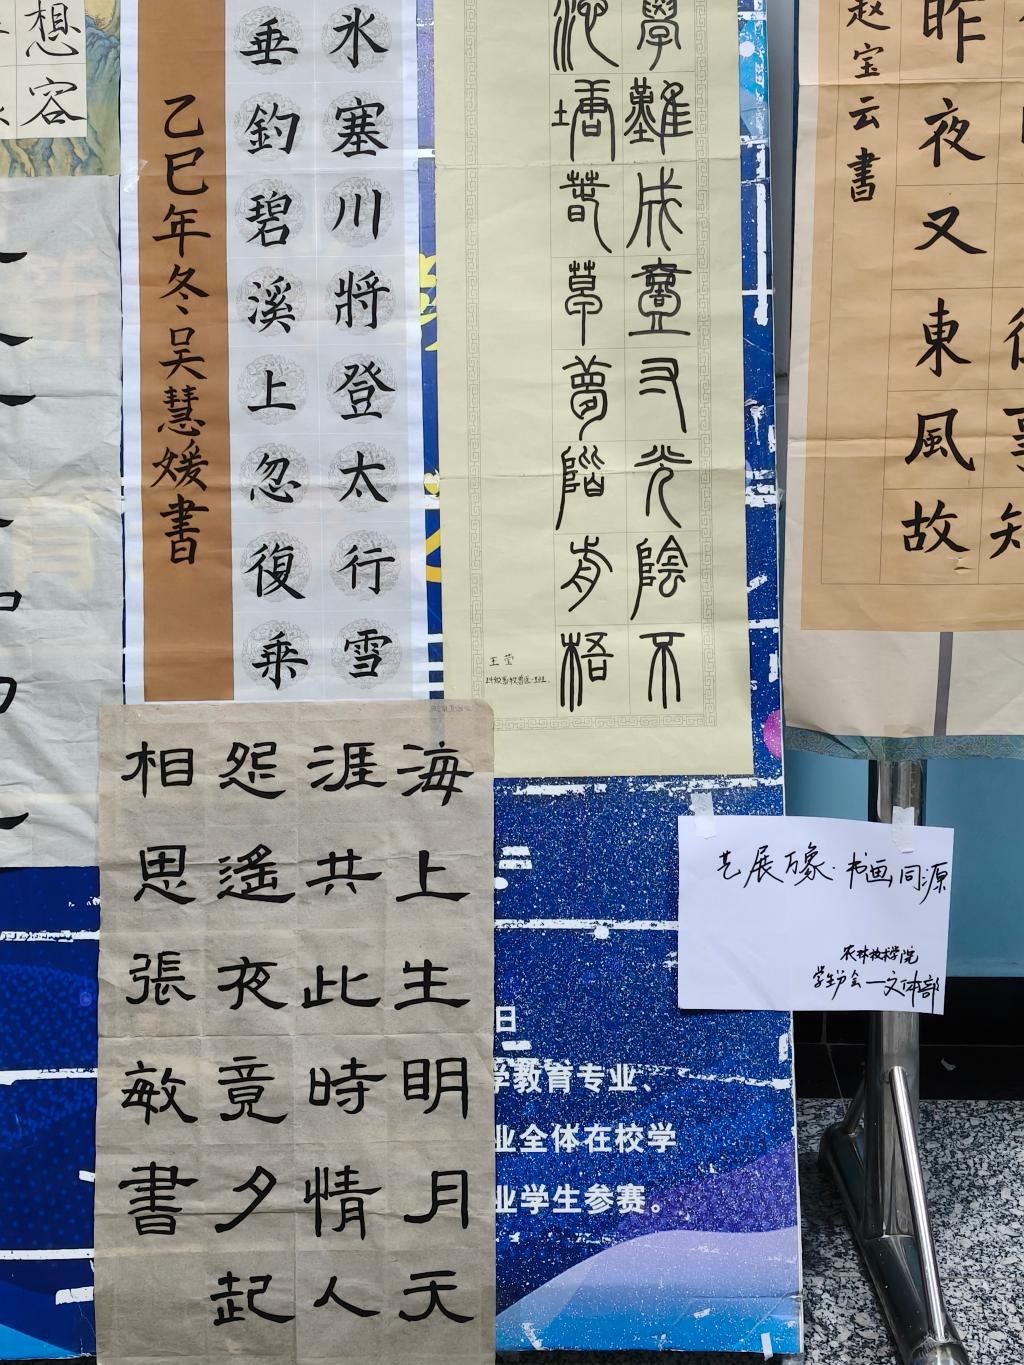 想容
氷塞川將登太行雪
垂釣碧溪上忽復乘
乙巳年冬吴慧媛書
學難成壹寸光陰不
池塘春草夢階前梧
王莹
昨夜又東風故
赵宝云書
海上生明月天
涯共此時情人
怨遙夜竟夕起
相思張敏書
艺展万象·书画同源
农林技术学院
学生分会—文体部
日
学教育专业、
业全体在校学
业学生参赛。